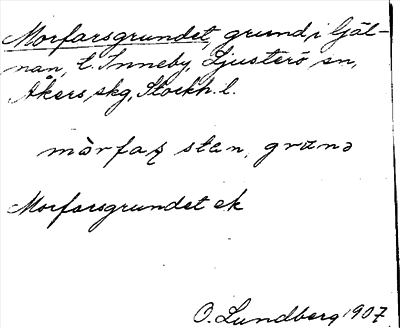 Morfarsgrundet, grund, i Gäl-
nan, t. Inneby, Ljusterö sn,
Åkers skg, Stockh. l.
mòrfaʂ stan, grɯnə
Morfarsgrundet ek
O. Lundberg 1907